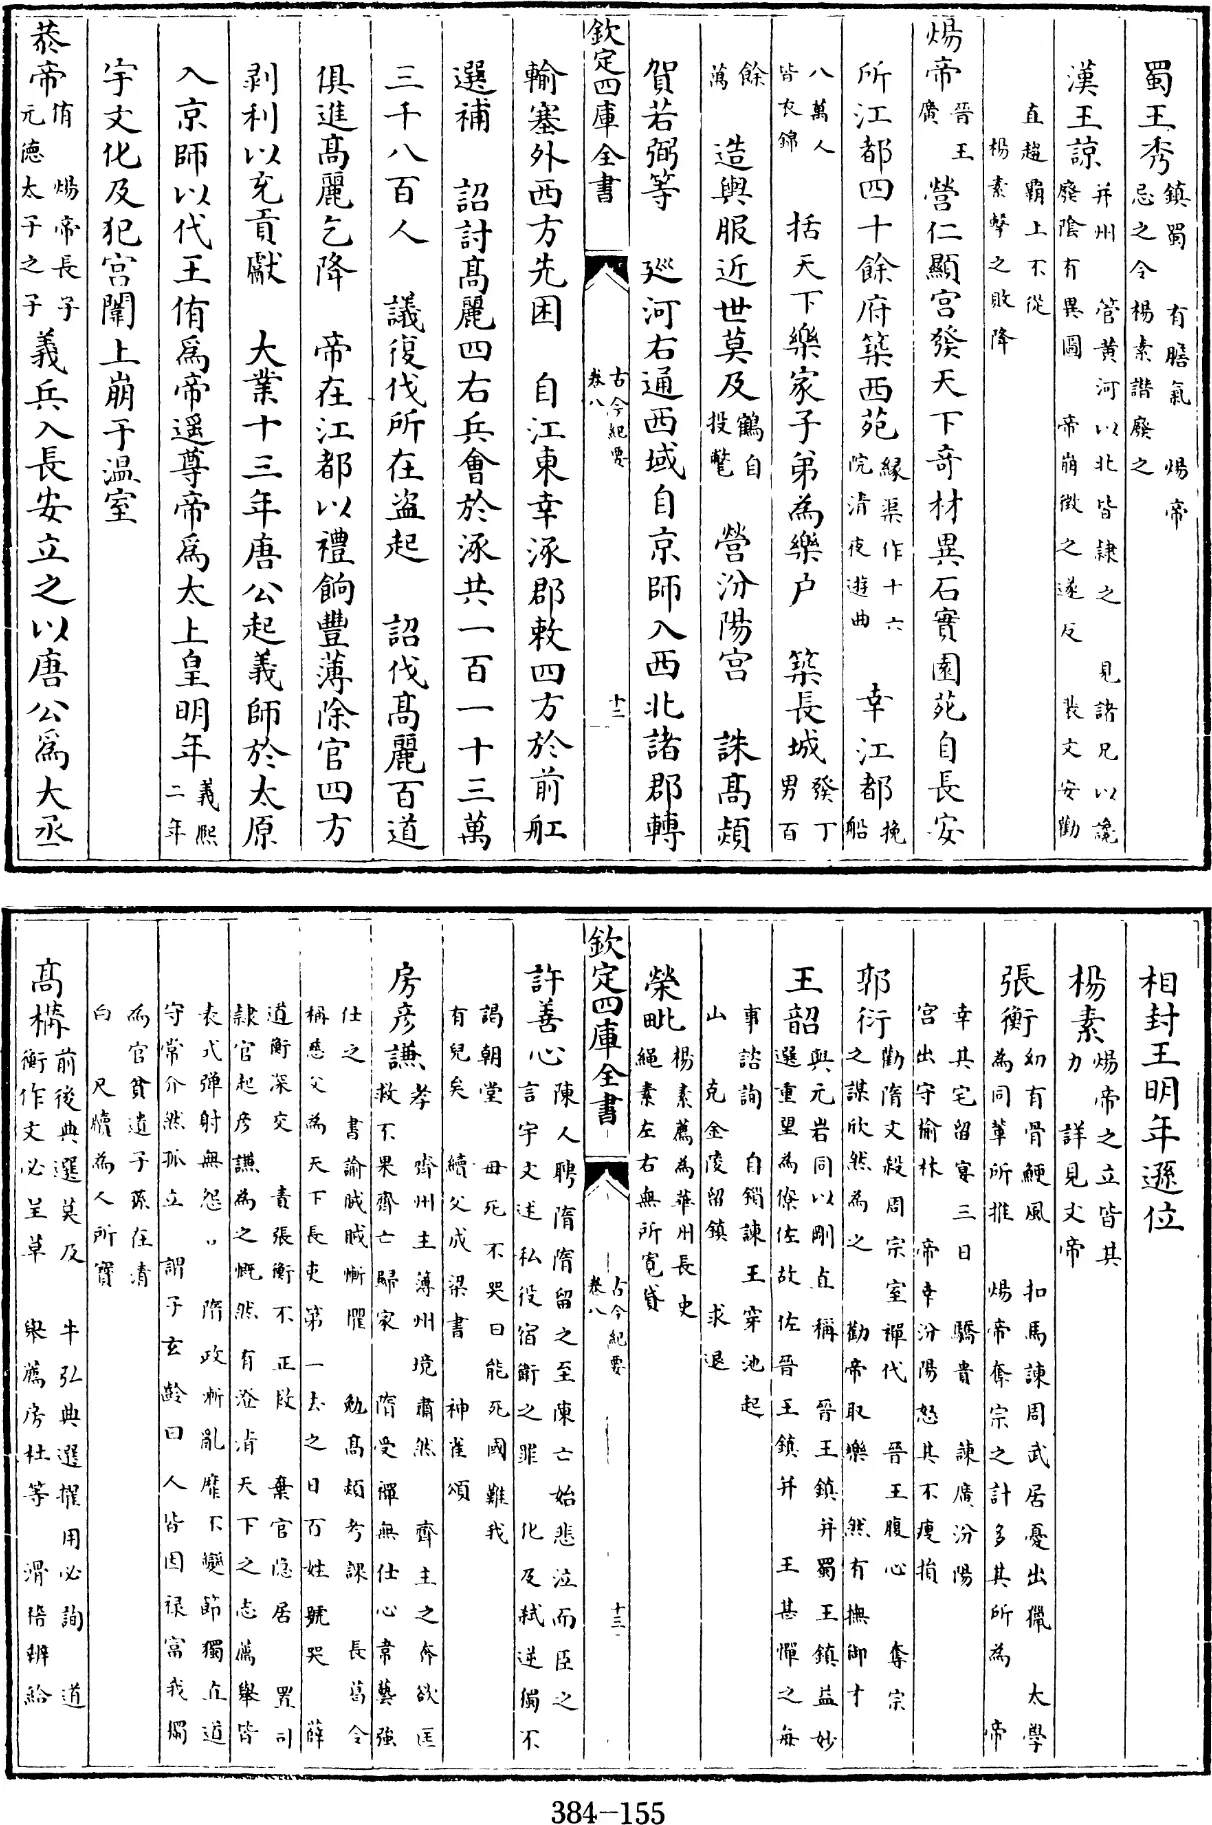 蜀王秀鎮蜀 有膽氣 煬帝忌之令楊素譖廢之
漢王諒并州 管黄河以北皆隸之 見諸兄以讒廢陰有異圖 帝崩徵之遂反 裴文安勸
直趨霸上不從楊素擊之敗降
煬帝晉王廣 營仁顯宫發天下奇材異石實園苑自長安
所江都四十餘府築西苑縁渠作十六院清夜遊曲 幸江都挽船
八萬人皆衣錦 括天下樂家子弟為樂户 築長城發丁男百
餘萬 造輿服近世莫及鶴自投氅 營汾陽宫 誅髙熲
賀若弼等 廵河右通西域自京師入西北諸郡轉
欽定四庫全書 古今紀要卷八 十二
輸塞外西方先困 自江東幸涿郡敕四方於前舡
選補 詔討髙麗四右兵會於涿共一百一十三萬
三千八百人 議復伐所在盗起 詔伐髙麗百道
俱進髙麗乞降 帝在江都以禮餉豐薄除官四方
剥利以充貢獻 大業十三年唐公起義師於太原
入京師以代王侑爲帝遥尊帝爲太上皇明年義熈二年
宇文化及犯宫闈上崩于温室
恭帝侑 煬帝長子元德太子之子義兵入長安立之以唐公爲大丞
相封王明年遜位
楊素煬帝之立皆其力 詳見文帝
張衡幼有骨鯁風 扣馬諫周武居憂出獵 太學為同軰所推 煬帝奪宗之計多其所為 帝
幸其宅留宴三日 驕貴 諫廣汾陽宫出守榆林 帝幸汾陽怒其不瘦損
郭衍勸隋文殺周宗室禪代 晉王腹心 奪宗之謀欣然為之 勸帝取樂 然有撫御才
王韶與元岩同以剛直稱 晉王鎮并蜀王鎮益妙選重望為僚佐故佐晉王鎮并 王甚憚之每
事諮詢 自鎻諫王穿池起山 克金陵留鎮 求退
榮毗楊素薦為華州長史繩素左右無所寛貸
欽定四庫全書 古今紀要卷八 十三
許善心陳人聘隋隋留之至陳亡始悲泣而臣之言宇文述私役宿衛之罪 化及弑逆獨不
謁朝堂 母死不哭曰能死國難我有兒矣 續父成梁書 神雀頌
房彦謙孝 齊州主薄州境肅然 齊主之奔欲匡救不果齊亡歸家 隋受禪無仕心韋藝強
仕之 書諭賊賊慚懼 勉髙熲考課 長葛令稱慈父為天下長吏第一去之日百姓號哭 薛
道衡深交 責張衡不正救 棄官隐居 置司隸官起彦謙為之慨然有澄清天下之志薦舉皆
表式弹射無怨 隋政漸亂靡不變節獨直道守常介然孤立 謂子玄齡曰人皆因禄富我獨
而官貧遺子孫在清白 尺牘為人所寳
髙構前後典選莫及 牛弘典選擢用必詢 道衡作文必呈草 舉薦房杜等 滑稽辨給
384-155